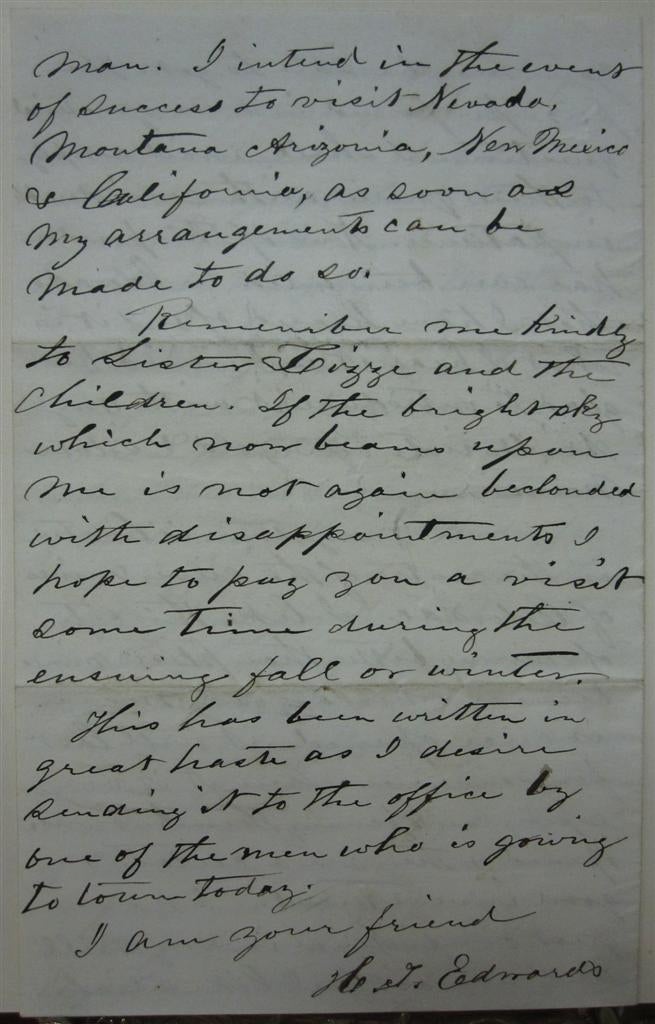 man. I intend in the event
of success to visit Nevada,
Montana Arizonia, New Mexico
& California, as soon as
my arrangements can be
made to do so.
Remember me kindly
to Sister Lizze and the
children. If the bright sky
which now beams upon
me is not again beclouded
with disappointments I
hope to pay you a visit
some time during the
ensuing fall or winter.
This has been written in
great haste as I desire
sending it to the office by
one of the men who is going
to town today.
I am your friend
H. T. Edwards